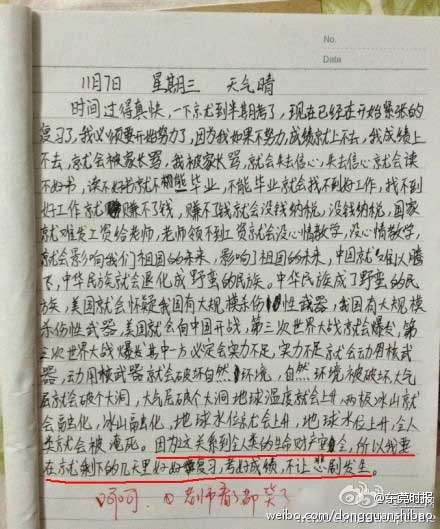 No.
Data
11月7日 星期三 天气晴
时间过得真快,一下就到半期考了,现在已经走开始紧张的
复习了,我必须要开始努力了,因为我如果不努力,成绩就上不去,我成绩上
不去,就会被家长骂,我被家长骂,就会失去信心,失去信心就会读
不好书,读不好书就不能毕业,不能毕业就会找不到好工作,找不到
好工作就赚不了钱,赚不了钱就会没钱纳税,没钱纳税,国家
就难发工资给老师,老师领不到工资就会没心情教学,没心情教学,
就会影响我们祖国的未来,影响了祖国的未来,中国就难以腾
飞,中华民族就会退化成野蛮的民族。中华民族成了野蛮的民
族,美国就会怀疑我国有大规模杀伤性武器,我国有大规模
杀伤性武器,美国就会向中国开战,第三次世界大战就会爆发,第
三次世界大战爆发其中一方必定会实力不足,实力不足就会动用核武
器,动用核武器就会破坏自然环境,自然环境被破坏,大气
层就会破个大洞,大气层破个大洞地球温度就会上升,两极冰山就
会融化,冰山融化,地球水位就会上升,地球水位上升,全人
类就会被淹死。因为这关系到全人类的生命财产安全,所以我要
在就剩下的几天里好好复习,考好成绩,不让悲剧发生。
呵呵 老师看了都笑了
@东莞时报
weibo.com/dongguanshibao